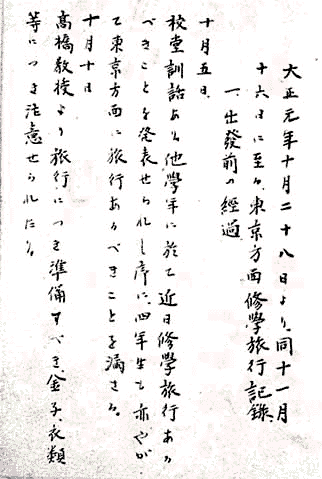 大正元年十月二十八日より、同十一月
十六日に至る、東京方面修學旅行記録、
一、出發前の經過、
十月五日、
校堂訓話あり、他學年に於て近日修學旅行ある
べきことを発表せられし序に、四年生も亦やが
て東京方面に旅行あるべきことを漏さる。
十月十日
髙橋教授より旅行につき準備すべき、金子、衣類
等につき注意せられたり。